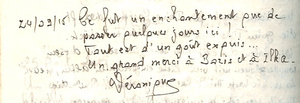 24/03/15 Ce fut un enchantement que de
passer quelques jours ici !
Tout est d'un goût exquis...
Un grand merci à Boris et à Ilka.
Véronique